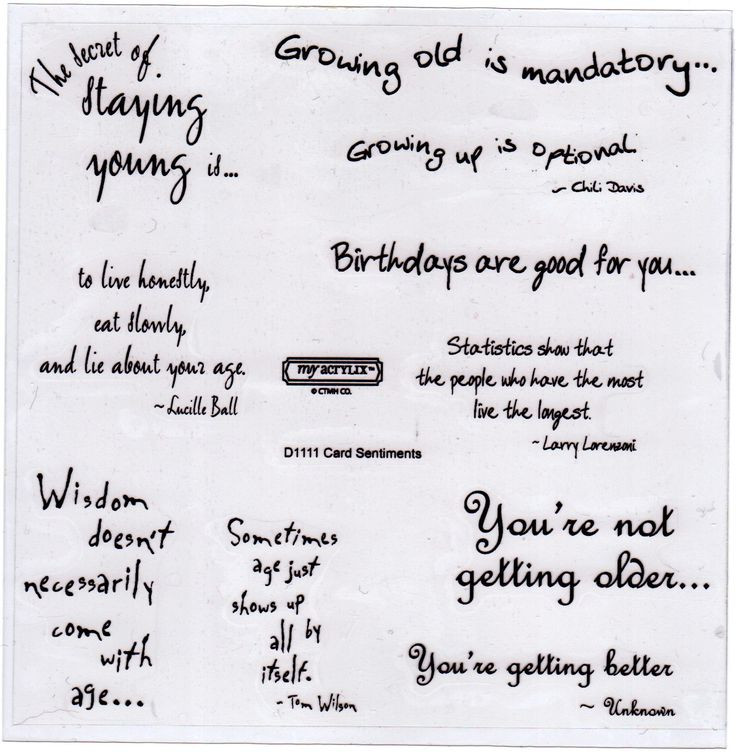 The Secret of
Staying
young is...
to live honestly,
eat slowly,
and lie about your age.
~ Lucille Ball
Growing old is mandatory...
Growing up is optional.
~ Chili Davis
Birthdays are good for you...
Statistics show that
the people who have the most
live the longest.
~ Larry Lorenzoni
my ACRYLIX™
© CTMH CO.
D1111 Card Sentiments
Wisdom
doesn't
necessarily
come
with
age...
Sometimes
age just
shows up
all by
itself.
~ Tom Wilson
You're not
getting older...
You're getting better
~ Unknown